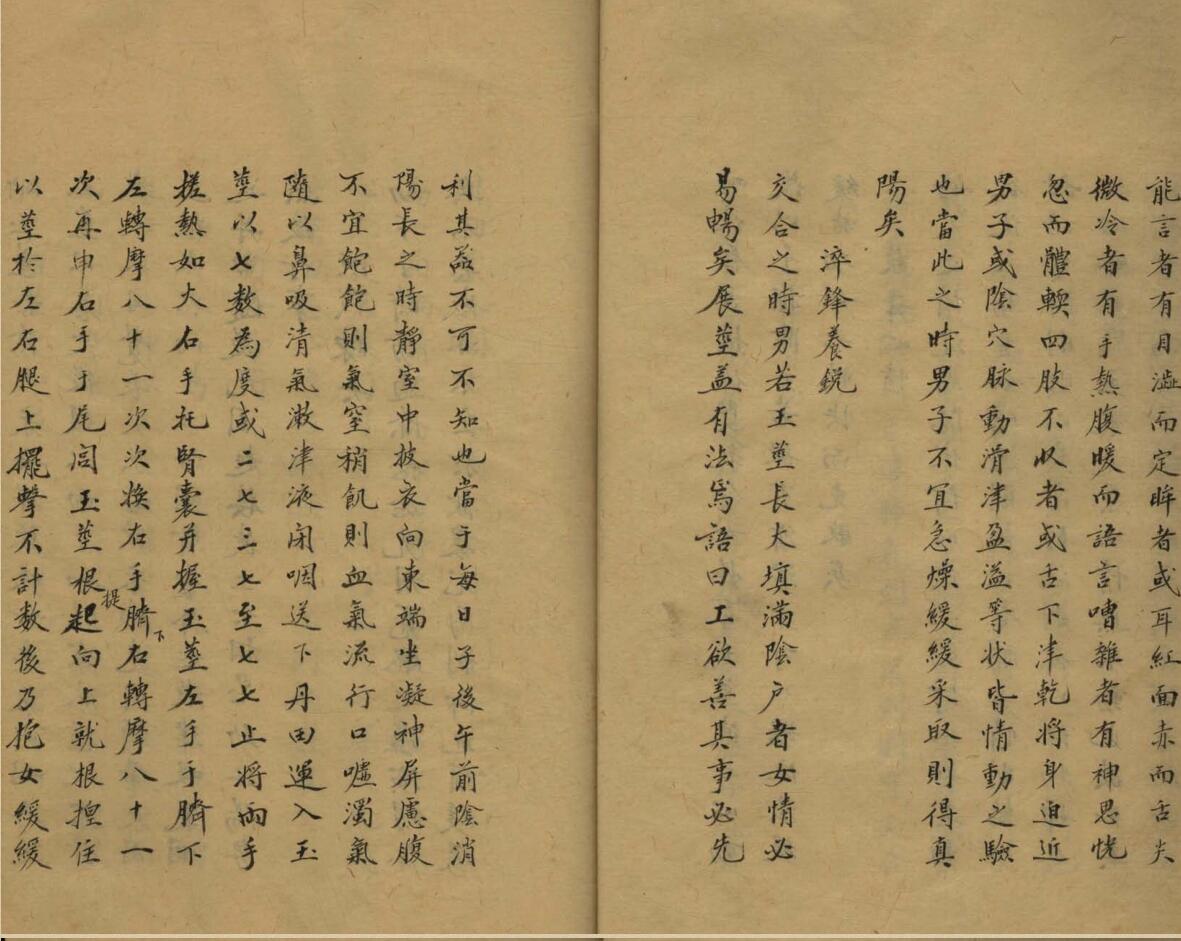 能言者有目澁而定眸者或耳紅面赤而舌尖
微冷者有手熱腹暖而語言嘈雜者有神思恍
忽而體輭四肢不收者或舌下津乾將身迫近
男子或陰穴脉動滑津盈溢等狀皆情動之驗
也當此之時男子不宜急燥緩緩采取則得真
陽矣
淬鋒養銳
交合之時男若玉莖長大填滿陰户者女情必
易暢矣展莖盖有法焉語曰工欲善其事必先
利其器不可不知也當于每日子後午前陰消
陽長之時靜室中披衣向東端坐凝神屏慮腹
不宜飽飽則氣窒稍飢則血氣流行口噓濁氣
隨以鼻吸清氣漱津液閉咽送下丹田運入玉
莖以七数為度或二七三七至七七止將兩手
搓熱如火右手托腎囊并握玉莖左手于臍下
左轉摩八十一次次换右手臍下右轉摩八十一
次再申右手于尾閭玉莖根提起向上就根揑住
以莖於左右腿上擺擊不計数後乃抱女緩緩